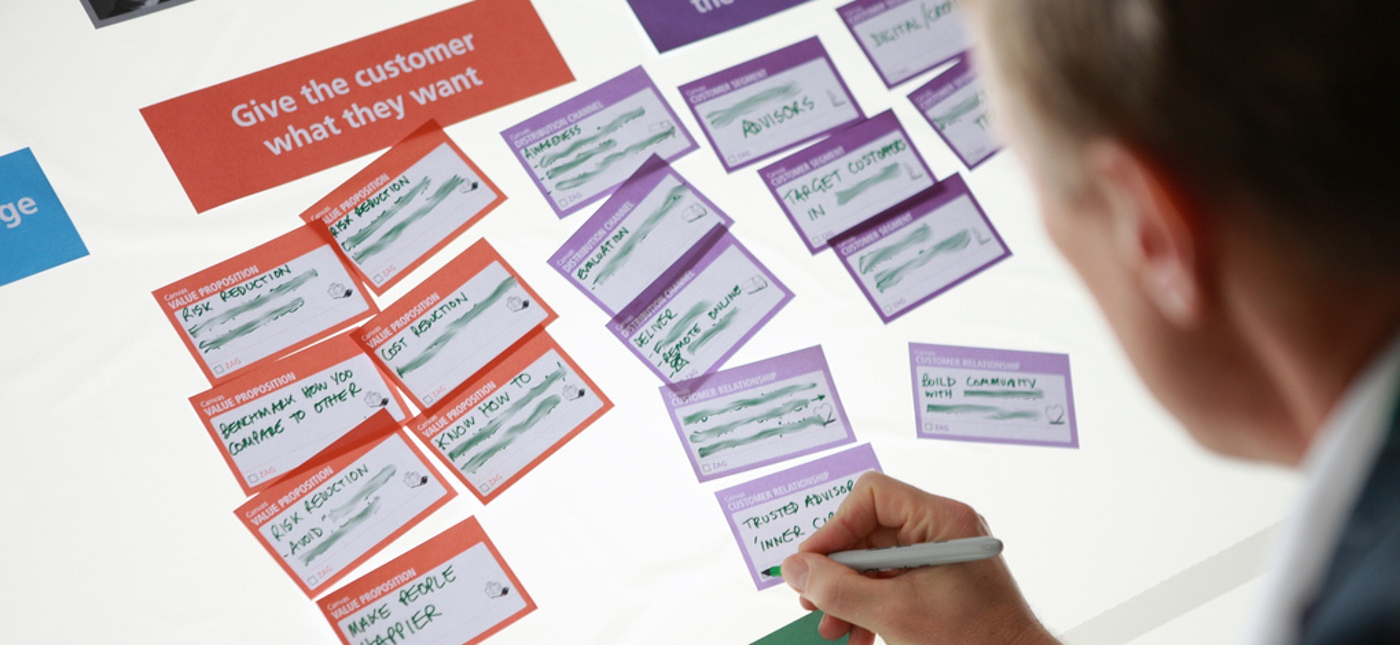 Give the customer
what they want
ge
the
Canvas
VALUE PROPOSITION
RISK REDUCTION
ZAG
Canvas
VALUE PROPOSITION
RISK REDUCTION
ZAG
Canvas
VALUE PROPOSITION
COST REDUCTION
ZAG
Canvas
VALUE PROPOSITION
BENCHMARK HOW YOU
COMPARE TO OTHER
ZAG
Canvas
VALUE PROPOSITION
KNOW HOW TO
ZAG
Canvas
VALUE PROPOSITION
RISK REDUCTION
- AVOID
ZAG
Canvas
VALUE PROPOSITION
MAKE PEOPLE
HAPPIER
Canvas
DISTRIBUTION CHANNEL
AWARENESS
ZAG
Canvas
DISTRIBUTION CHANNEL
EVALUATION
Canvas
DISTRIBUTION CHANNEL
DELIVER
- REMOTE ONLINE
ZAG
Canvas
CUSTOMER SEGMENT
DIGITAL/
Canvas
CUSTOMER SEGMENT
ADVISORS
ZAG
Canvas
CUSTOMER SEGMENT
TARGET CUSTOMERS
IN
ZAG
Canvas
CUSTOMER SEGMENT
ZAG
Canvas
CUSTOMER RELATIONSHIP
ZAG
Canvas
CUSTOMER RELATIONSHIP
BUILD COMMUNITY
WITH
ZAG
Canvas
CUSTOMER RELATIONSHIP
TRUSTED ADVISOR
'INNER